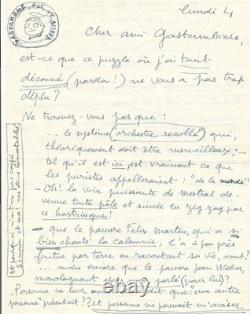 Lundi 4
Cher ami Gastambide,
est-ce que ce puzzle où j'ai tant
déconné (pardon!) ne vous a pas trop
déplu?
Ne trouvez-vous pas que:
.. le système (orchestre recollé) qui,
théoriquement doit être merveilleux..
tel qu'il est ici est vraiment ce que
les puristes appelleraient: "de la
- Oh! la voix puissante de Mestral de-
venue toute pâle et suivie en zig-zag par
ce bastringue!
- que le pauvre Félix Marten, qui a si
bien chanté la calomnie, l'a
foutue par terre en racontant sa vie, and?
- moins encore que le pauvre Jean Weber,
monologuant
Personne ne leur avait dit que quelqu'une autre
personne "présentait"? Et personne ne pouvait m'aviser